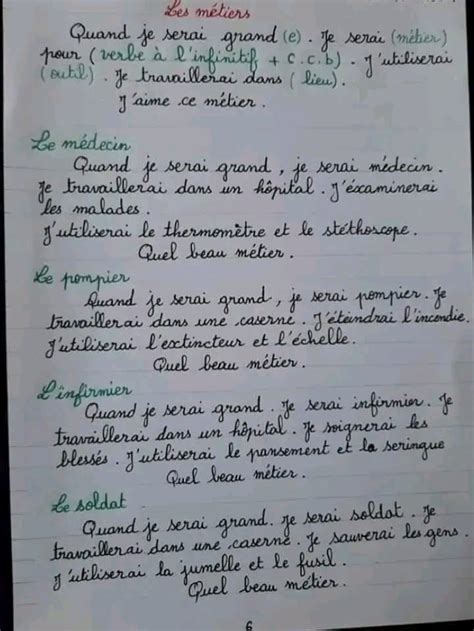 Les métiers
Quand je serai grand (e). Je serai (métier)
pour (verbe à l'infinitif + C.c.b). J'utiliserai
(outil). Je travaillerai dans (lieu).
J'aime ce métier.
Le médecin
Quand je serai grand, je serai médecin.
Je travaillerai dans un hôpital. J'éxaminerai
les malades.
J'utiliserai le thermomètre et le stéthoscope.
Quel beau métier.
Le pompier
Quand je serai grand, je serai pompier. Je
travaillerai dans une caserne. J'éteindrai l'incendie.
J'utiliserai l'extincteur et l'échelle.
Quel beau métier.
L'infirmier
Quand je serai grand. Je serai infirmier. Je
travaillerai dans un hôpital. Je soignerai les
blessés. J'utiliserai le pansement et la seringue
Quel beau métier.
Le soldat
Quand je serai grand. Je serai soldat. Je
travaillerai dans une caserne. Je sauverai les gens.
J'utiliserai la jumelle et le fusil.
Quel beau métier.
6